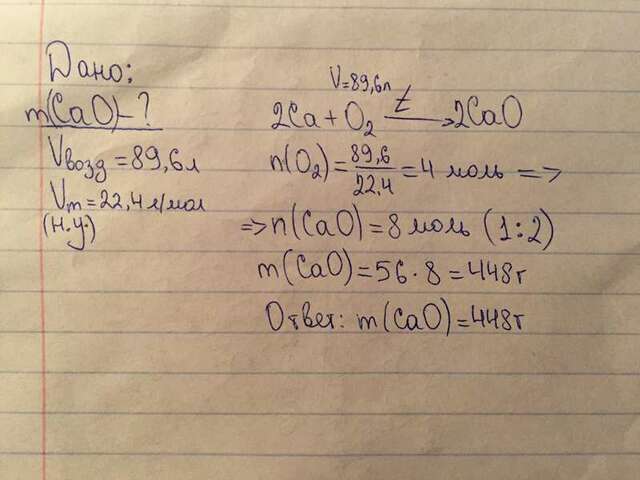 Дано:
m(CaO)-?
Vвозд=89,6л
Vm=22,4 л/мол
(н.у)
V=89,6л
2Ca + O₂ t→ 2CaO
n(O₂)= 89,6/22,4 = 4 моль =>
=> n(CaO)=8 моль (1:2)
m(CaO)=56·8=448г
Ответ: m(CaO)=448г